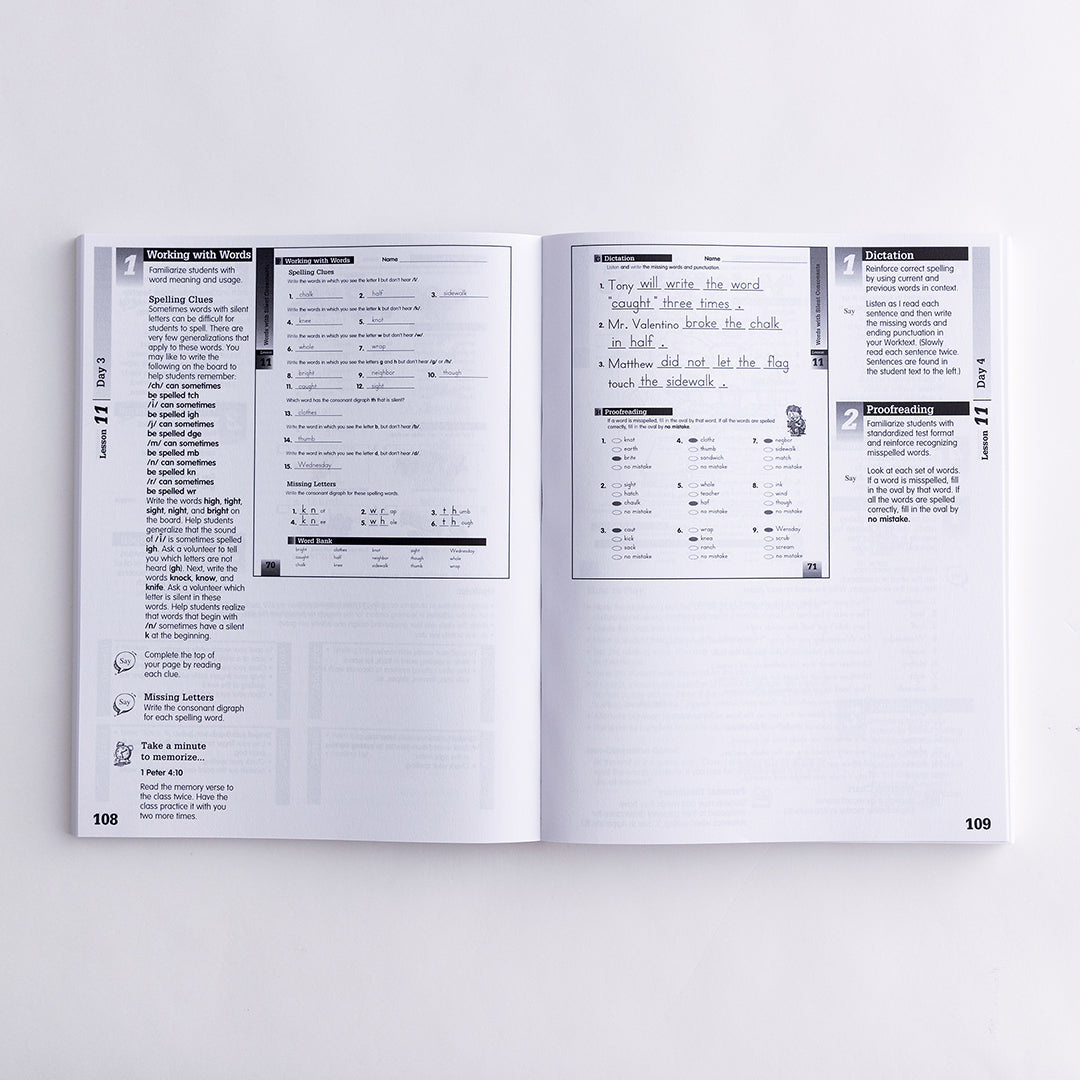 Lesson 11 Day 3
1 Working with Words
Familiarize students with
word meaning and usage.
Spelling Clues
Sometimes words with silent
letters can be difficult for
students to spell. There are
very few generalizations that
apply to these words. You
may like to write the
following on the board to
help students remember:
/ch/ can sometimes
be spelled tch
/ī/ can sometimes
be spelled igh
/j/ can sometimes
be spelled dge
/m/ can sometimes
be spelled mb
/n/ can sometimes
be spelled kn
/r/ can sometimes
be spelled wr
Write the words high, tight,
sight, night, and bright on
the board. Help students
generalize that the sound
of /ī/ is sometimes spelled
igh. Ask a volunteer to tell
you which letters are not
heard (gh). Next, write the
words knock, know, and
knife. Ask a volunteer which
letter is silent in these
words. Help students realize
that words that begin with
/n/ sometimes have a silent
k at the beginning.
Say
Complete the top of
your page by reading
each clue.
Say
Missing Letters
Write the consonant digraph
for each spelling word.
Take a minute
to memorize...
1 Peter 4:10
Read the memory verse to
the class twice. Have the
class practice it with you
two more times.
108
Words with Silent Consonants
Lesson
11
Working with Words Name
Spelling Clues
Write the words in which you see the letter l but don't hear /l/.
1. chalk 2. half 3. sidewalk
Write the words in which you see the letter k but don't hear /k/.
4. knee 5. knot
Write the words in which you see the letter w but don't hear /w/.
6. whole 7. wrap
Write the words in which you see the letters g and h but don't hear /g/ or /h/.
8. bright 9. neighbor 10. though
11. caught 12. sight
Which word has the consonant digraph th that is silent?
13. clothes
Write the word in which you see the letter b, but don't hear /b/.
14. thumb
Write the word in which you see the letter d, but don't hear /d/
15. Wednesday
Missing Letters
Write the consonant digraph for these spelling words.
1. k n ot 2. w r ap 3. t h umb
4. k n ee 5. w h ole 6. t h ough
Word Bank
bright clothes knot sight Wednesday
caught half neighbor though whole
chalk knee sidewalk thumb wrap
70
Dictation Name
Listen and write the missing words and punctuation.
1. Tony will write the word
"caught" three times .
2. Mr. Valentino broke the chalk
in half .
3. Matthew did not let the flag
touch the sidewalk .
Words with Silent Consonants
Lesson
11
Proofreading
If a word is misspelled, fill in the oval by that word. If all the words are spelled
correctly, fill in the oval by no mistake.
1. knot 4. clothz 7. negbor
earth thumb sidewalk
brite sandwich match
no mistake no mistake no mistake
2. sight 5. whole 8. ink
hatch teacher wind
chaulk haf though
no mistake no mistake no mistake
3. caut 6. wrap 9. Wensday
kick knea scrub
sack ranch scream
no mistake no mistake no mistake
71
1 Dictation
Reinforce correct spelling
by using current and
previous words in context.
Say
Listen as I read each
sentence and then write
the missing words and
ending punctuation in
your Worktext. (Slowly
read each sentence twice.
Sentences are found in
the student text to the left.)
2 Proofreading
Familiarize students with
standardized test format
and reinforce recognizing
misspelled words.
Say
Look at each set of words.
If a word is misspelled, fill
in the oval by that word. If
all the words are spelled
correctly, fill in the oval by
no mistake.
Lesson 11 Day 4
109